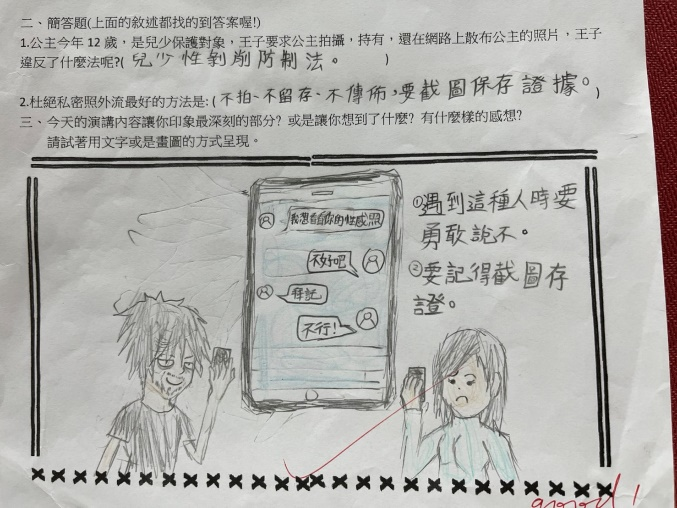 二、簡答題(上面的敘述都找的到答案喔!)
1.公主今年 12 歲，是兒少保護對象，王子要求公主拍攝，持有，還在網路上散布公主的照片，王子
違反了什麼法呢?( 兒少性剝削防制法。 )
2.杜絕私密照外流最好的方法是: ( 不拍、不留存、不傳佈，要截圖保存證據。 )
三、今天的演講內容讓你印象最深刻的部分? 或是讓你想到了什麼? 有什麼樣的感想?
請試著用文字或是畫圖的方式呈現。
我想看看你的性感照
不好吧
拜託
不行!
①遇到這種人時要
勇敢說不。
②要記得截圖存
證。
good!